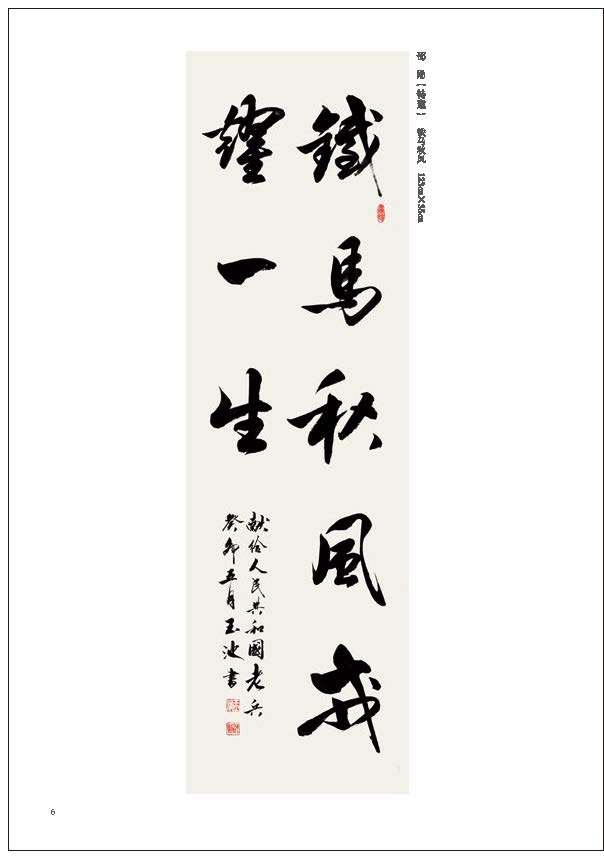 【特邀】 铁马秋风 123cm×35cm
鐵馬秋風戎
耀一生
献给人民共和國老兵
癸卯五月玉波書
6